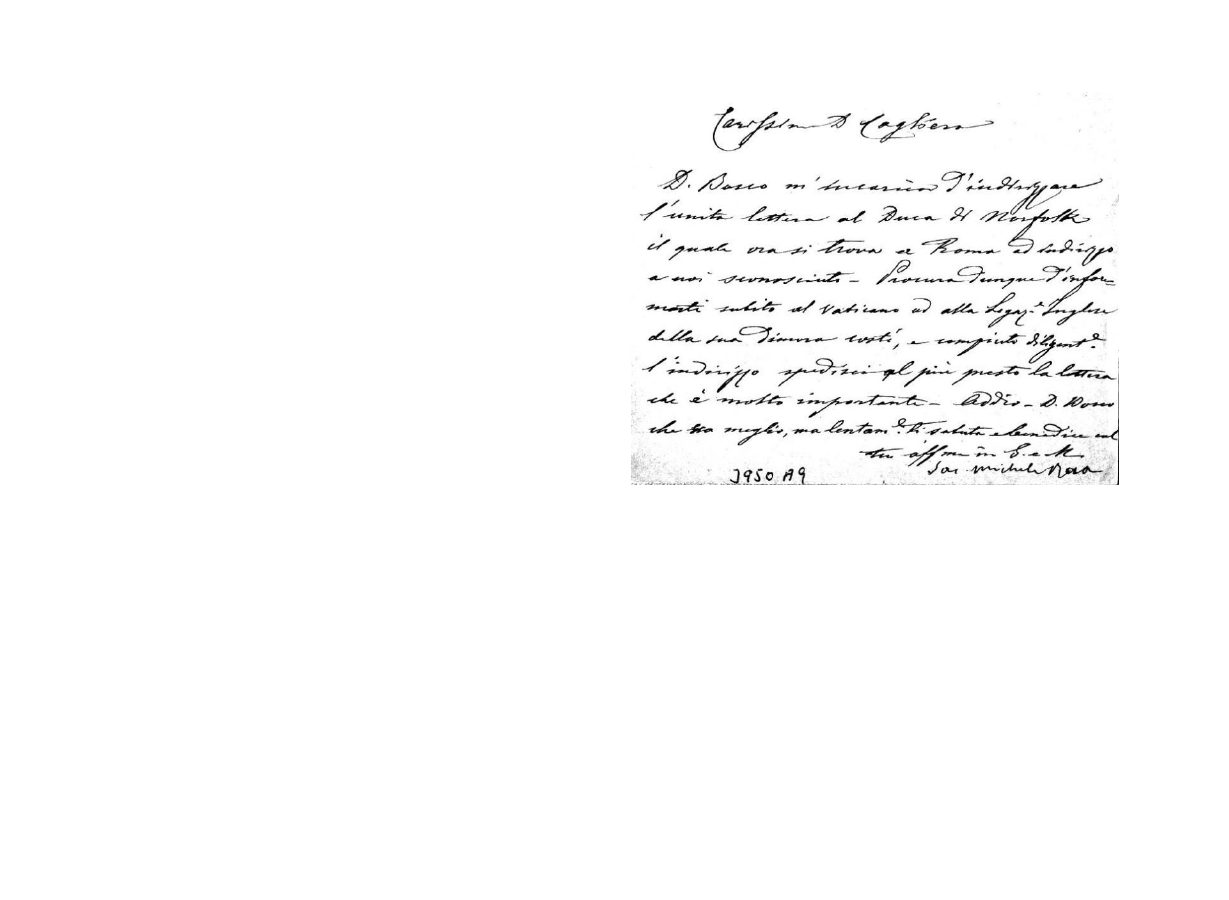 Carissimo D Cagliero
D. Bosco m'incarica d'indirizzare
l'unita lettera al Duca di Norfolk
il quale ora si trova a Roma ad indirizzo
a noi sconosciuto – Procura dunque d'infor=
marti subito al Vaticano od alla Legaz.e Inglese
della sua dimora costì, e compiuto diligent.e
l'indirizzo spedisci al più presto la lettera
che è molto importante – Addio – D. Bosco
che va meglio, ma lentam.e ti saluta e benedice col
tuo aff.mo in G. e M.
Sac. Michele Rua
J950 A9